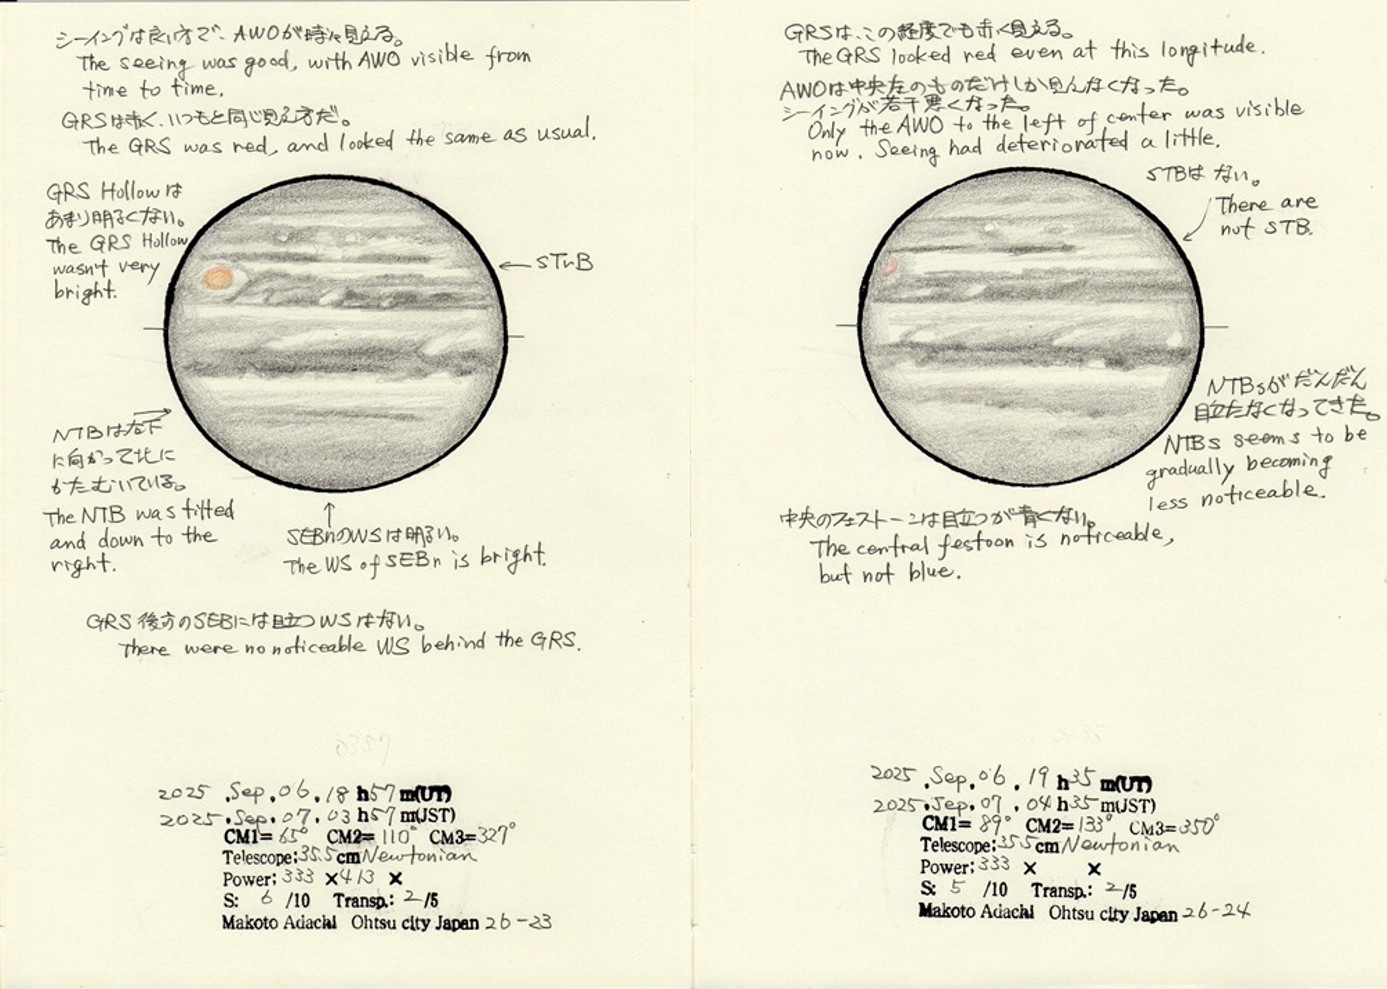 シーイングは良い方で、AWOが時々見える。
The seeing was good, with AWO visible from
time to time.
GRSは赤く、いつもと同じ見え方だ。
The GRS was red, and looked the same as usual.
GRS Hollowは
あまり明るくない。
The GRS Hollow
wasn't very
bright.
STrB
NTBは右下
に向かって北に
かたむいている。
The NTB was tilted
and down to the
right.
SEBnのWSは明るい。
The WS of SEBn is bright.
GRS後方のSEBには目立つWSはない。
There were no noticeable WS behind the GRS.
2025.Sep.06.18h57m(UT)
2025.Sep.07.03h57m(JST)
CM1=65° CM2=110° CM3=327°
Telescope:35.5cm Newtonian
Power:333 ×413 ×
S: 6 /10 Transp.: 2/5
Makoto Adachi Ohtsu city Japan 26-23
GRSは、この経度でも赤く見える。
The GRS looked red even at this longitude.
AWOは中央左のものだけしか見えなくなった。
シーイングが若干悪くなった。
Only the AWO to the left of center was visible
now. Seeing had deteriorated a little.
STBは ない。
There are
not STB.
NTBsがだんだん
目立たなくなってきた。
NTBs seems to be
gradually becoming
less noticeable.
中央のフェストーンは目立つが青くない。
The central festoon is noticeable,
but not blue.
2025.Sep.06.19h35m(UT)
2025.Sep.07.04h35m(JST)
CM1=89° CM2=133° CM3=350°
Telescope:35.5cm Newtonian
Power:333 × ×
S: 5 /10 Transp.: 2/5
Makoto Adachi Ohtsu city Japan 26-24